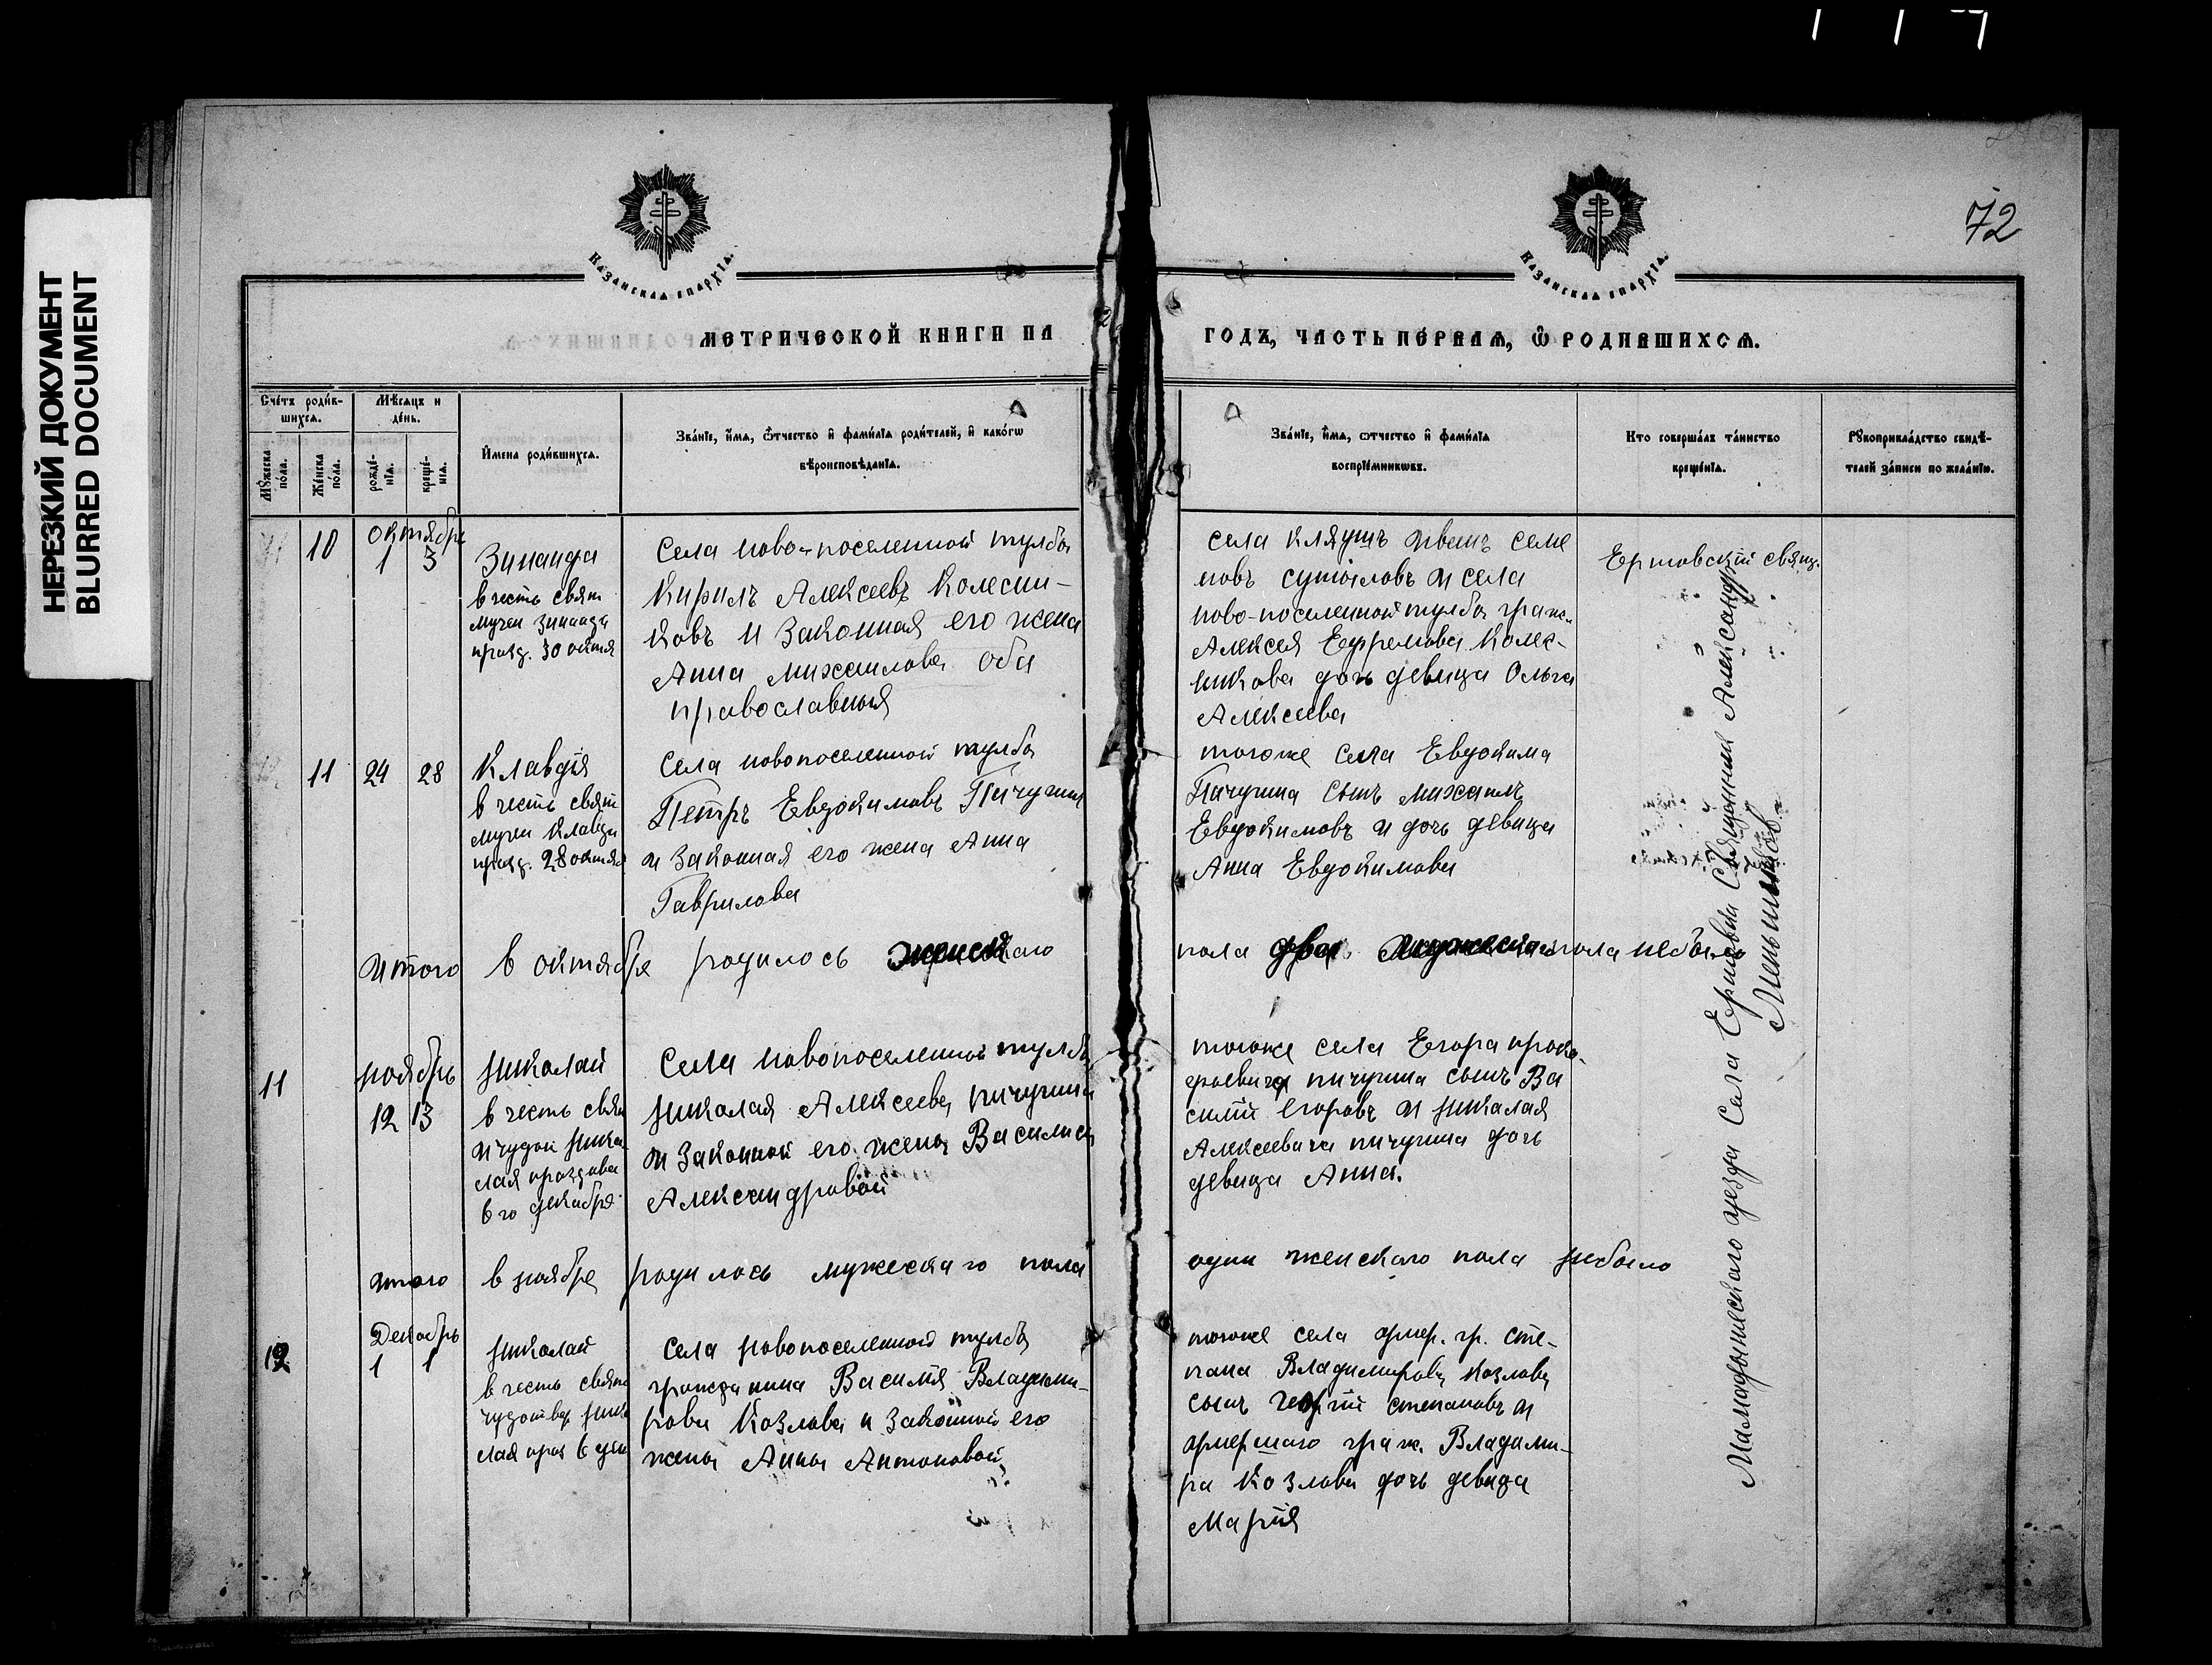 НЕРЕЗКИЙ ДОКУМЕНТ
BLURRED DOCUMENT
72
Казанская епархїа.
Казанская епархїа.
МЕТРИЧЕСКОЙ КНИГИ НА
ГОДЪ, ЧАСТЬ ПЕРВАѦ, Ѡ РОДИВШИХСѦ.
Счетъ родив-
шихсѧ.
Мѣсѧцъ и
день.
Мужеска
пола.
Женска
пола.
рожде-
нїѧ.
креще-
нїѧ.
Имена родившихсѧ.
Званїе, имѧ, ѿчество и фамилїа родителей, и какогѡ
вѣроисповѣданїѧ.
Званїе, имѧ, ѿчество и фамилїѧ
воспрїемникѡвъ.
Кто совершалъ таинство
крещенїѧ.
Рукоприкладство свидѣ-
телей записи по желанїю.
10
октябрь
1 3
Зинаида
в честь свят
мучен Зинаиды
празд. 30 октя
Села ново-поселенной тулбы
Кирилъ Алексеевъ Колесни-
ковъ и Законная его жена
Анна михаилова оба
православныя
села кляушъ иванъ семе
новъ и села
ново-поселенной тулбы граж.
Алексея Ефремова Колес-
никова дочь девица Ольга
Алексеева
Ертовскій свящ.
11 24 28
Клавдія
в честь свят
мучен Клавди
празд. 28 октя
Села новопоселенной тулбы
Петръ Евдокимовъ Пичугин
и Законная его жена Анна
Гаврилова
тогоже села Евдокима
Пичугина сынъ михаилъ
Евдокимовъ и дочь девица
Анна Евдокимова
итого в октябре родилось женскаго
пола два мужескаго пола небыло
11
ноябрь
12 13
николай
в честь свят
и чудот нико
лая праздова
6 го декабря
Села новопоселенной тулбы
николая Алексеева пичугина
и Законной его жены Василисы
Александровой
тогоже села Егора проко-
фьевича пичугина сынъ Ва
силій егоровъ и николая
Алексеевича пичугина дочь
девица Анна.
итого в ноябре родилось мужескаго пола
один женскаго пола небыло
12
Декабрь
1 1
николай
в честь свят
чудотвор нико
лая праз 6 дек
Села новопоселенной тулбы
гражданина Василія Владими-
рова Козлова и Законной его
жены Анны Антоновой
тогоже села умер. гр. сте-
пана Владимирова Козлова
сынъ георгій степановъ и
умершаго граж. Владими-
ра Козлова дочь девица
Марія
Мамадышскаго уезда Села Ертовки Священник Александр
Меньшиков